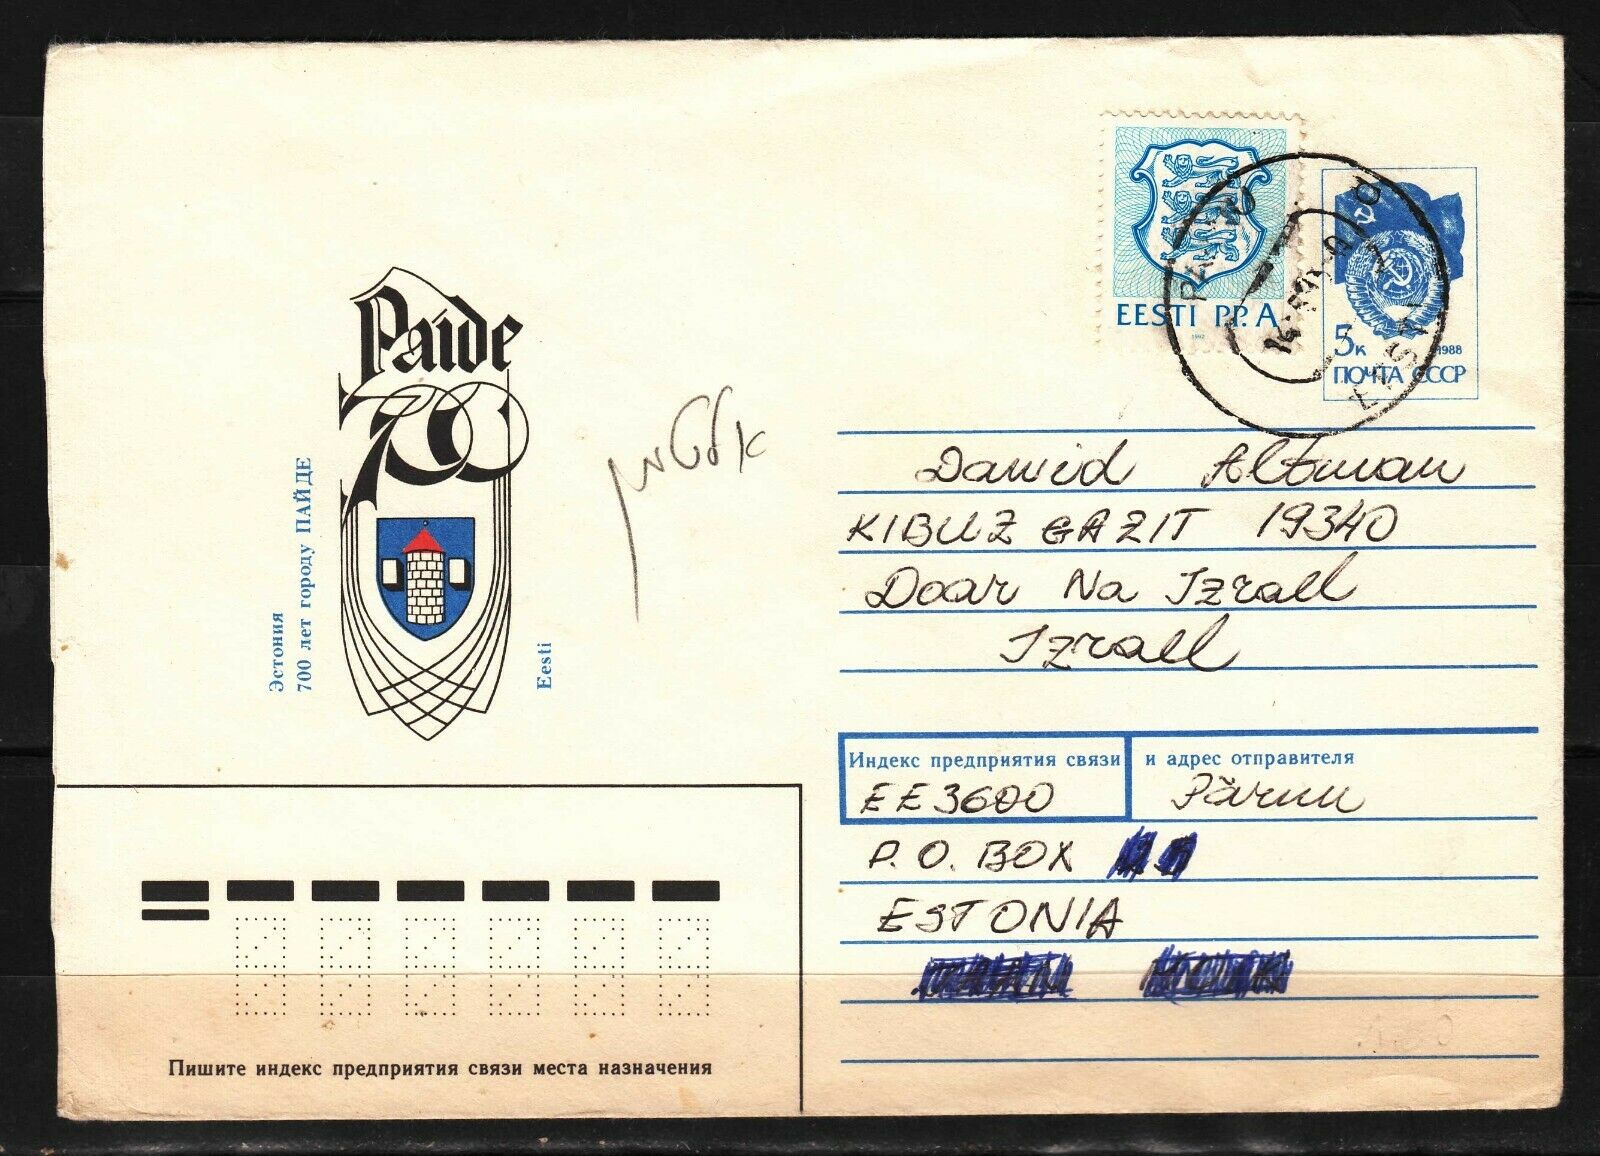 Paide
700
Эстония
700 лет городу ПАЙДЕ
Eesti
EESTI P.P. A
1992
5к 1988
ПОЧТА СССР
PÄRNU
EESTI
Dawid Altman
KIBUZ GAZIT 19340
Doar Na Izrall
Izrall
Индекс предприятия связи и адрес отправителя
EE3600 Pärnu
P.O. BOX
ESTONIA
Пишите индекс предприятия связи места назначения